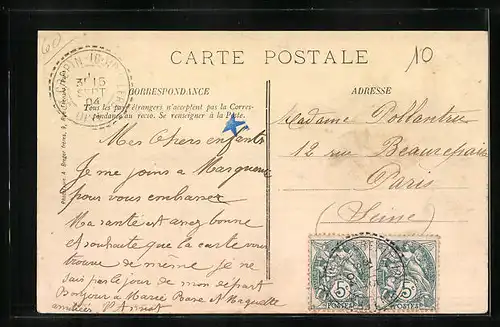 60
CARTE POSTALE
10
CORRESPONDANCE
ADRESSE
Tous les pays étrangers n'acceptent pas la Corres-
pondance au recto. Se renseigner à la Poste.
15
SEPT
04
Mes Chers enfants
Je me joins a
pour vous embrasser
Ma santé et assez bonne
et souhaite que la carte vous
trouve de même je ne
sais pas le jour de mon départ
Bonjour a Marie Rose
Madame
12 rue Beaurepaire
Paris
(Seine)
5c 5c
POSTES POSTES